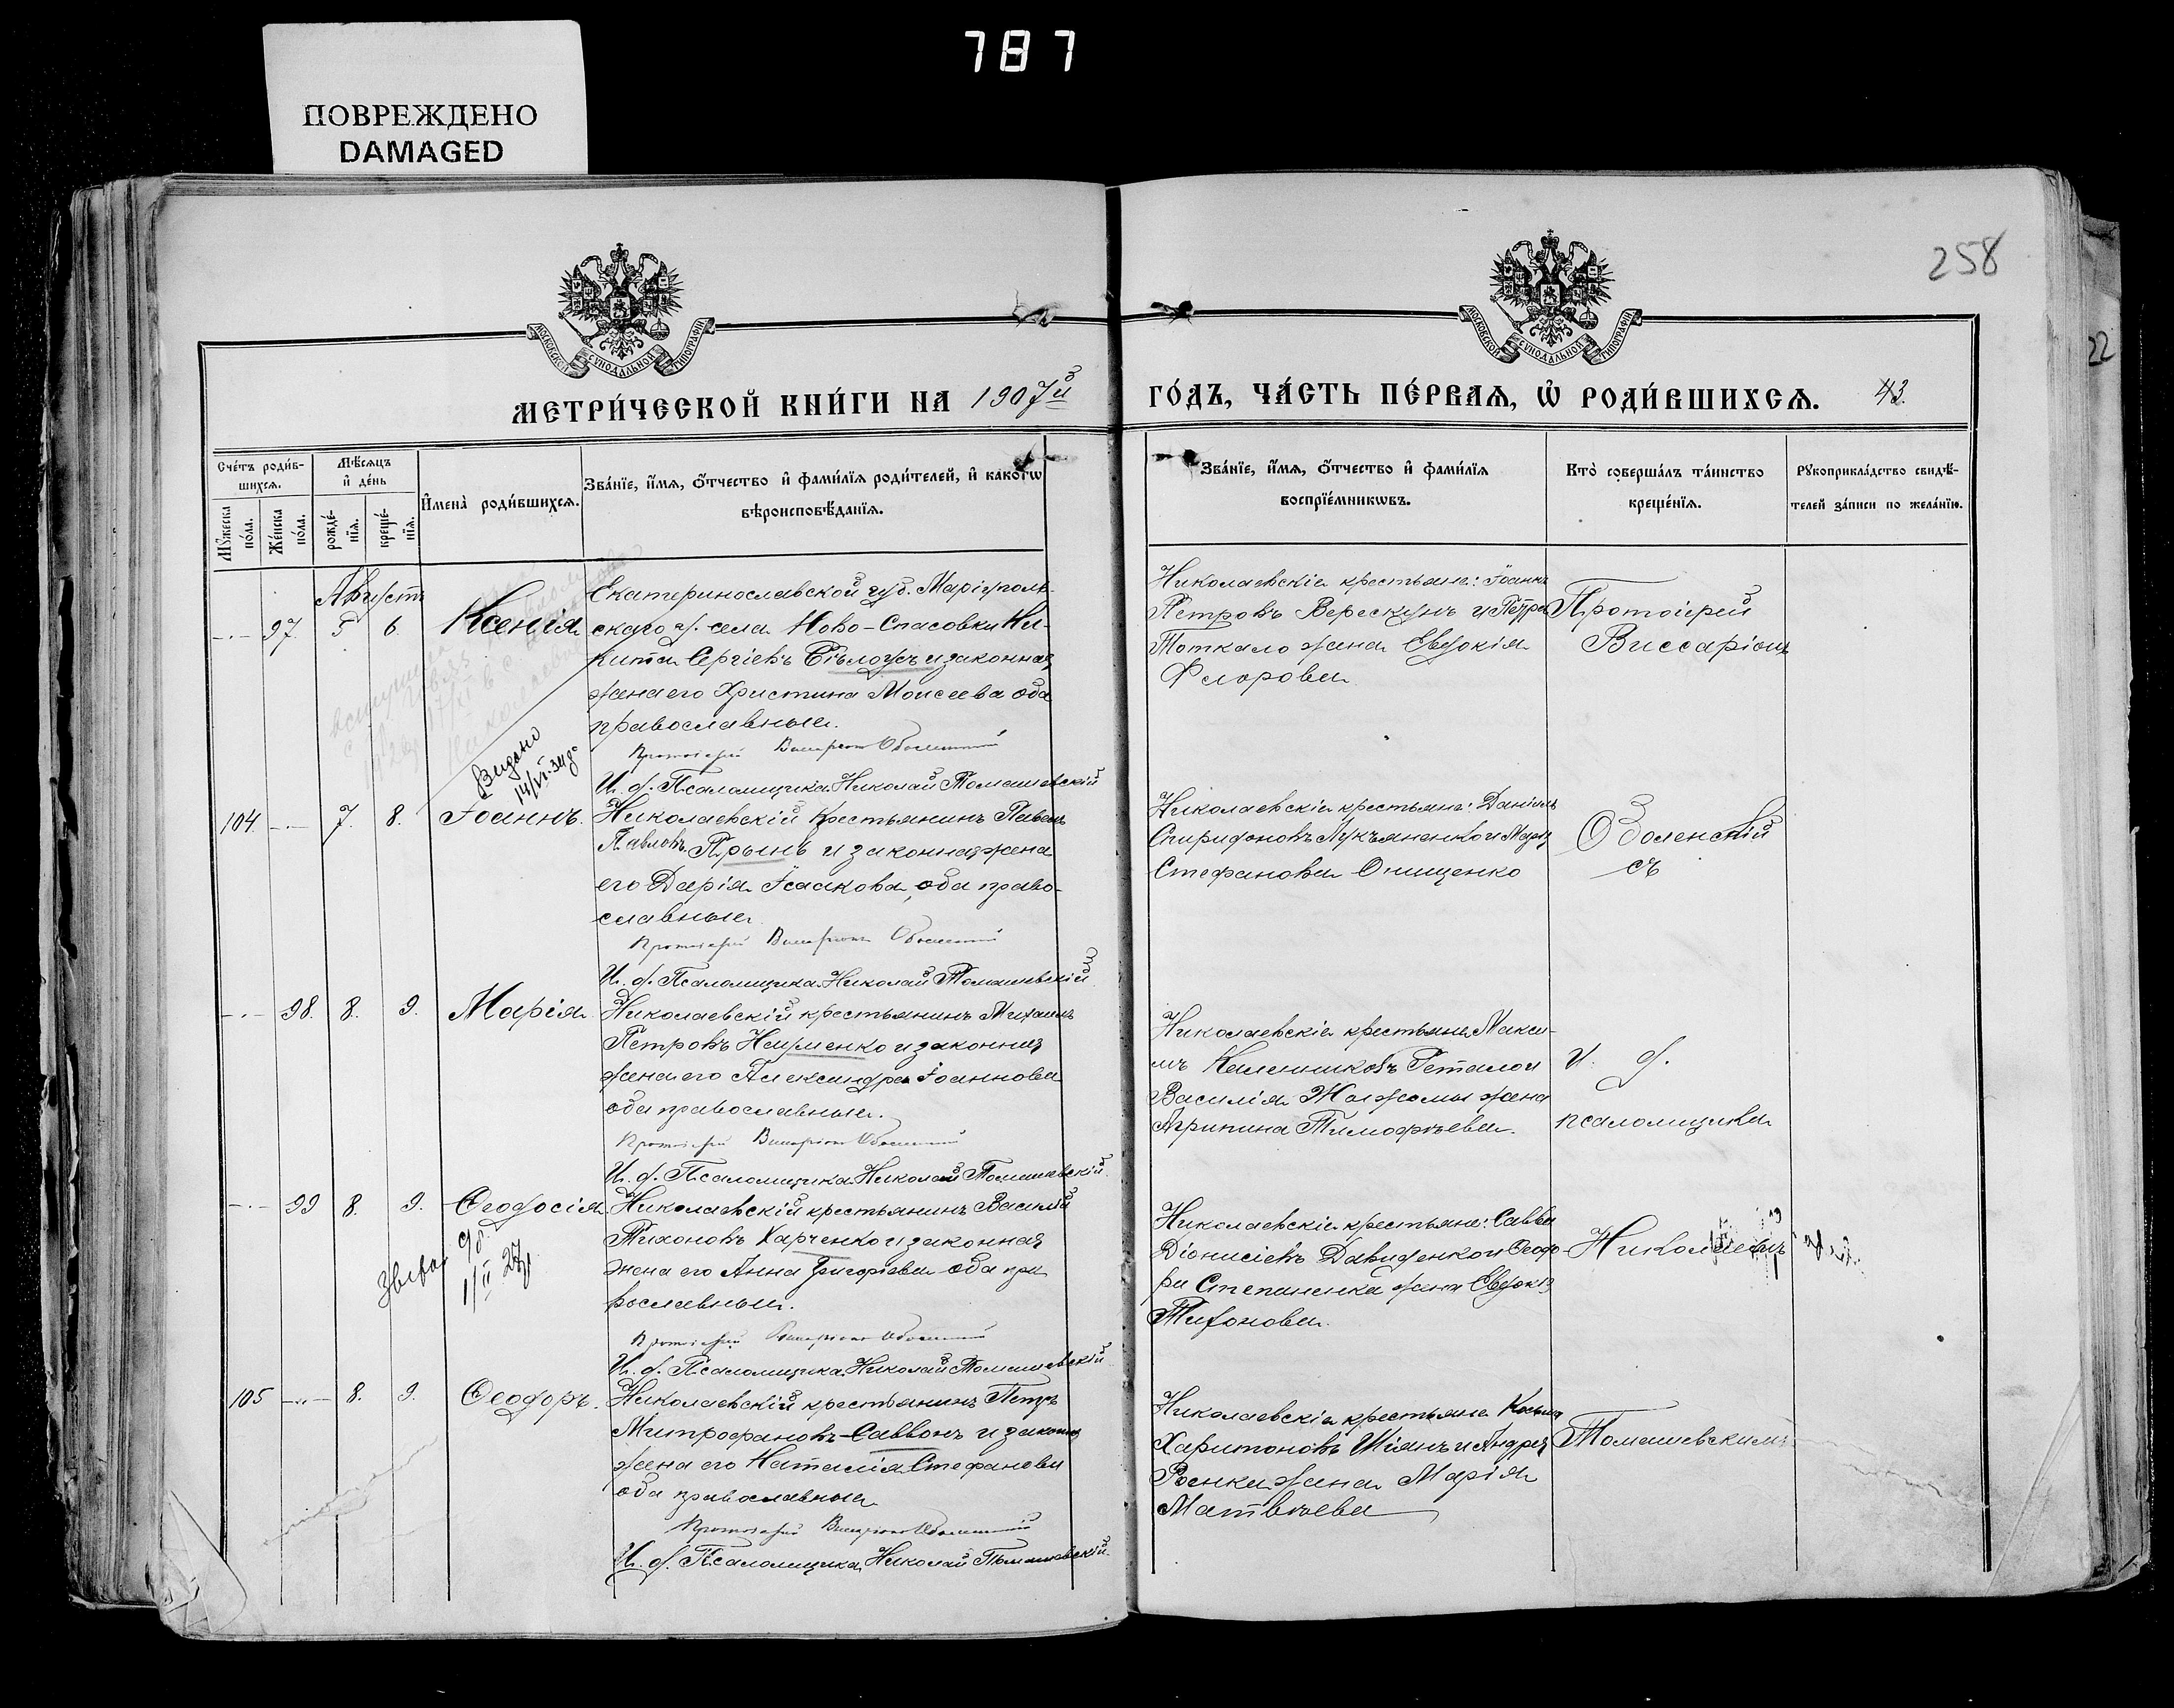 787
ПОВРЕЖДЕНО
DAMAGED
258
22
МОСКОВСКОЙ СѴНОДАЛЬНОЙ ТИПОГРАФІИ
МОСКОВСКОЙ СѴНОДАЛЬНОЙ ТИПОГРАФІИ
МЕТРИ́ЧЕСКОЙ КНИ́ГИ НА 1907й
ГО́ДЪ, ЧА́СТЬ ПЕ́РВАЯ, Ѡ҆ РОДИ́ВШИХСЯ. 43.
Сче́тъ роди́в-
шихся.
Мꙋжеска по́ла.
Же́нска по́ла.
Мѣ́сяцъ
и҆ де́нь
рожде́-
нїя.
креще́-
нїя.
И҆мена̀ роди́вшихся.
Зва́нїе, и҆́мя, ѻ҆́тчество и҆ фами́лїя роди́телей, и҆ какогѡ
вѣроисповѣ́данїя.
Зва́нїе, и҆́мя, ѻ҆́тчество и҆ фами́лїя
воспрїе́мниковъ.
Кто̀ соверша́лъ та́инство
креще́нїя.
Рꙋкоприкла́дство свидѣ́-
телей за́писи по жела́нїю.
Августъ
-.- 97. 5 6. Ксенія
Екатеринославской губ. Маріуполь-
скаго у. села Ново-Спасовки Ни-
кита Сергіевъ Бѣлоусъ и законная
жена его Христина Моисеева оба
православные.
Протоіерей Виссаріонъ Оболенскій
И. д. Псаломщика Николай Томашевскій
Николаевскіе крестьяне: Іоаннъ
Петровъ Верескунъ и Петра
Поткало жена Евдокія
Флорова
Протоіерей
Виссаріонъ
Видано
14/VI-34
104. -.- 7. 8. Іоаннъ.
Николаевскій Крестьянинъ Павелъ
Павловъ Прынь и законная жена
его Дарія Исаакова, оба право-
славные.
Протоіерей Виссаріонъ Оболенскій
И. д. Псаломщика Николай Томашевскій
Николаевскіе крестьяне: Даніилъ
Спиридоновъ Лукъяненко и Марія
Стефанова Онищенко
Оболенскій
съ
-.- 98. 8. 9. Марія
Николаевскій крестьянинъ Михаилъ
Петровъ Науменко и законная
жена его Александра Іоаннова
оба православные.
Протоіерей Виссаріонъ Оболенскій
И. д. Псаломщика Николай Томашевскій.
Николаевскіе крестьяне Макси-
мъ
Василія жена
Агрипина Тимофѣева.
и. д.
псаломщика
-.- 99 8. 9. Ѳеодосія
Николаевскій крестьянинъ Василій
Тихоновъ Харченко и законная
жена его Анна Григоріева оба пра
вославные.
Протоіерей Виссаріонъ Оболенскій
И. д. Псаломщика Николай Томашевскій
Николаевскіе крестьяне: Савва
Діонисіевъ Давиденко и Ѳеодо-
ра Степаненка жена Евдокія
Тихонова.
Николаемъ
105 -.- 8. 9. Ѳеодоръ.
Николаевскій крестьянинъ Петръ
Митрофановъ Саввонъ и законная
жена его Наталія Стефанова
оба православные
Протоіерей Виссаріонъ Оболенскій
И. д. Псаломщика Николай Томашевскій.
Николаевскіе крестьяне Косьма
Харитоновъ Шіянъ и Андрея
Роенка жена Марія
Матвѣева
Томашевскимъ